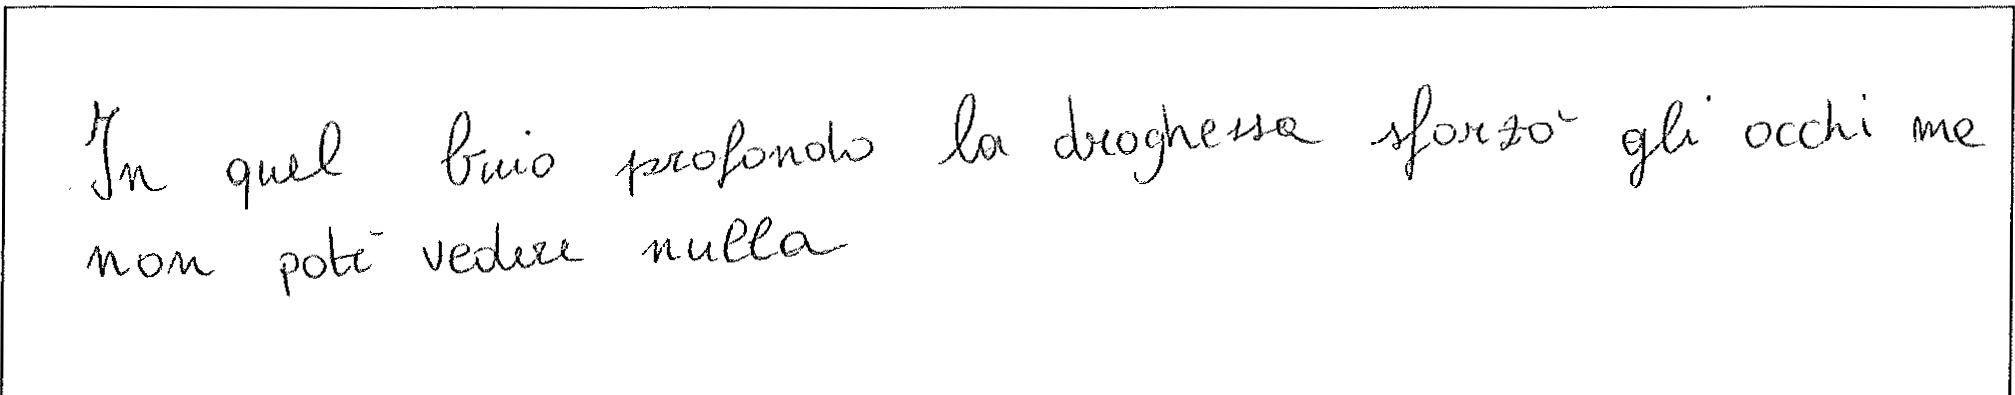 In quel buio profondo la droghessa sforzò gli occhi ma
non potè vedere nulla